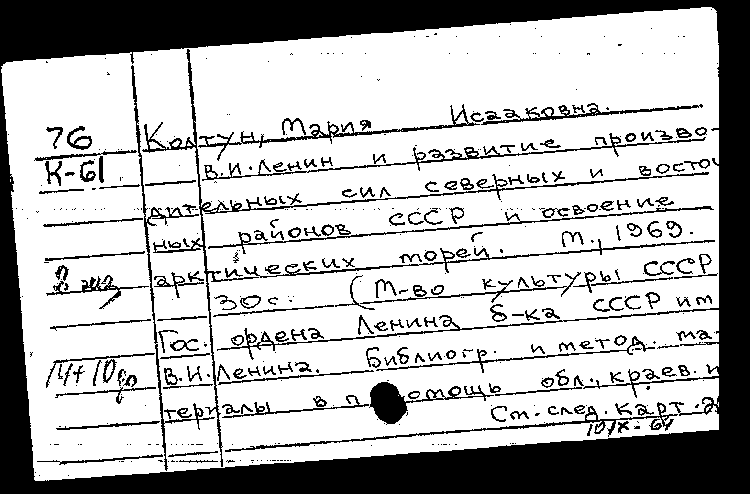 76 Колтун, Мария Исааковна.
К-61 В.И.Ленин и развитие произво-
дительных сил северных и восточ
ных районов СССР и освоение
арктических морей. М., 1969.
2 экз
30с. (М-во культуры СССР
Гос. ордена Ленина б-ка СССР им
14+10 В.И.Ленина. Библиогр. и метод. ма-
териалы в помощь обл., краев. и
См. след. карт.